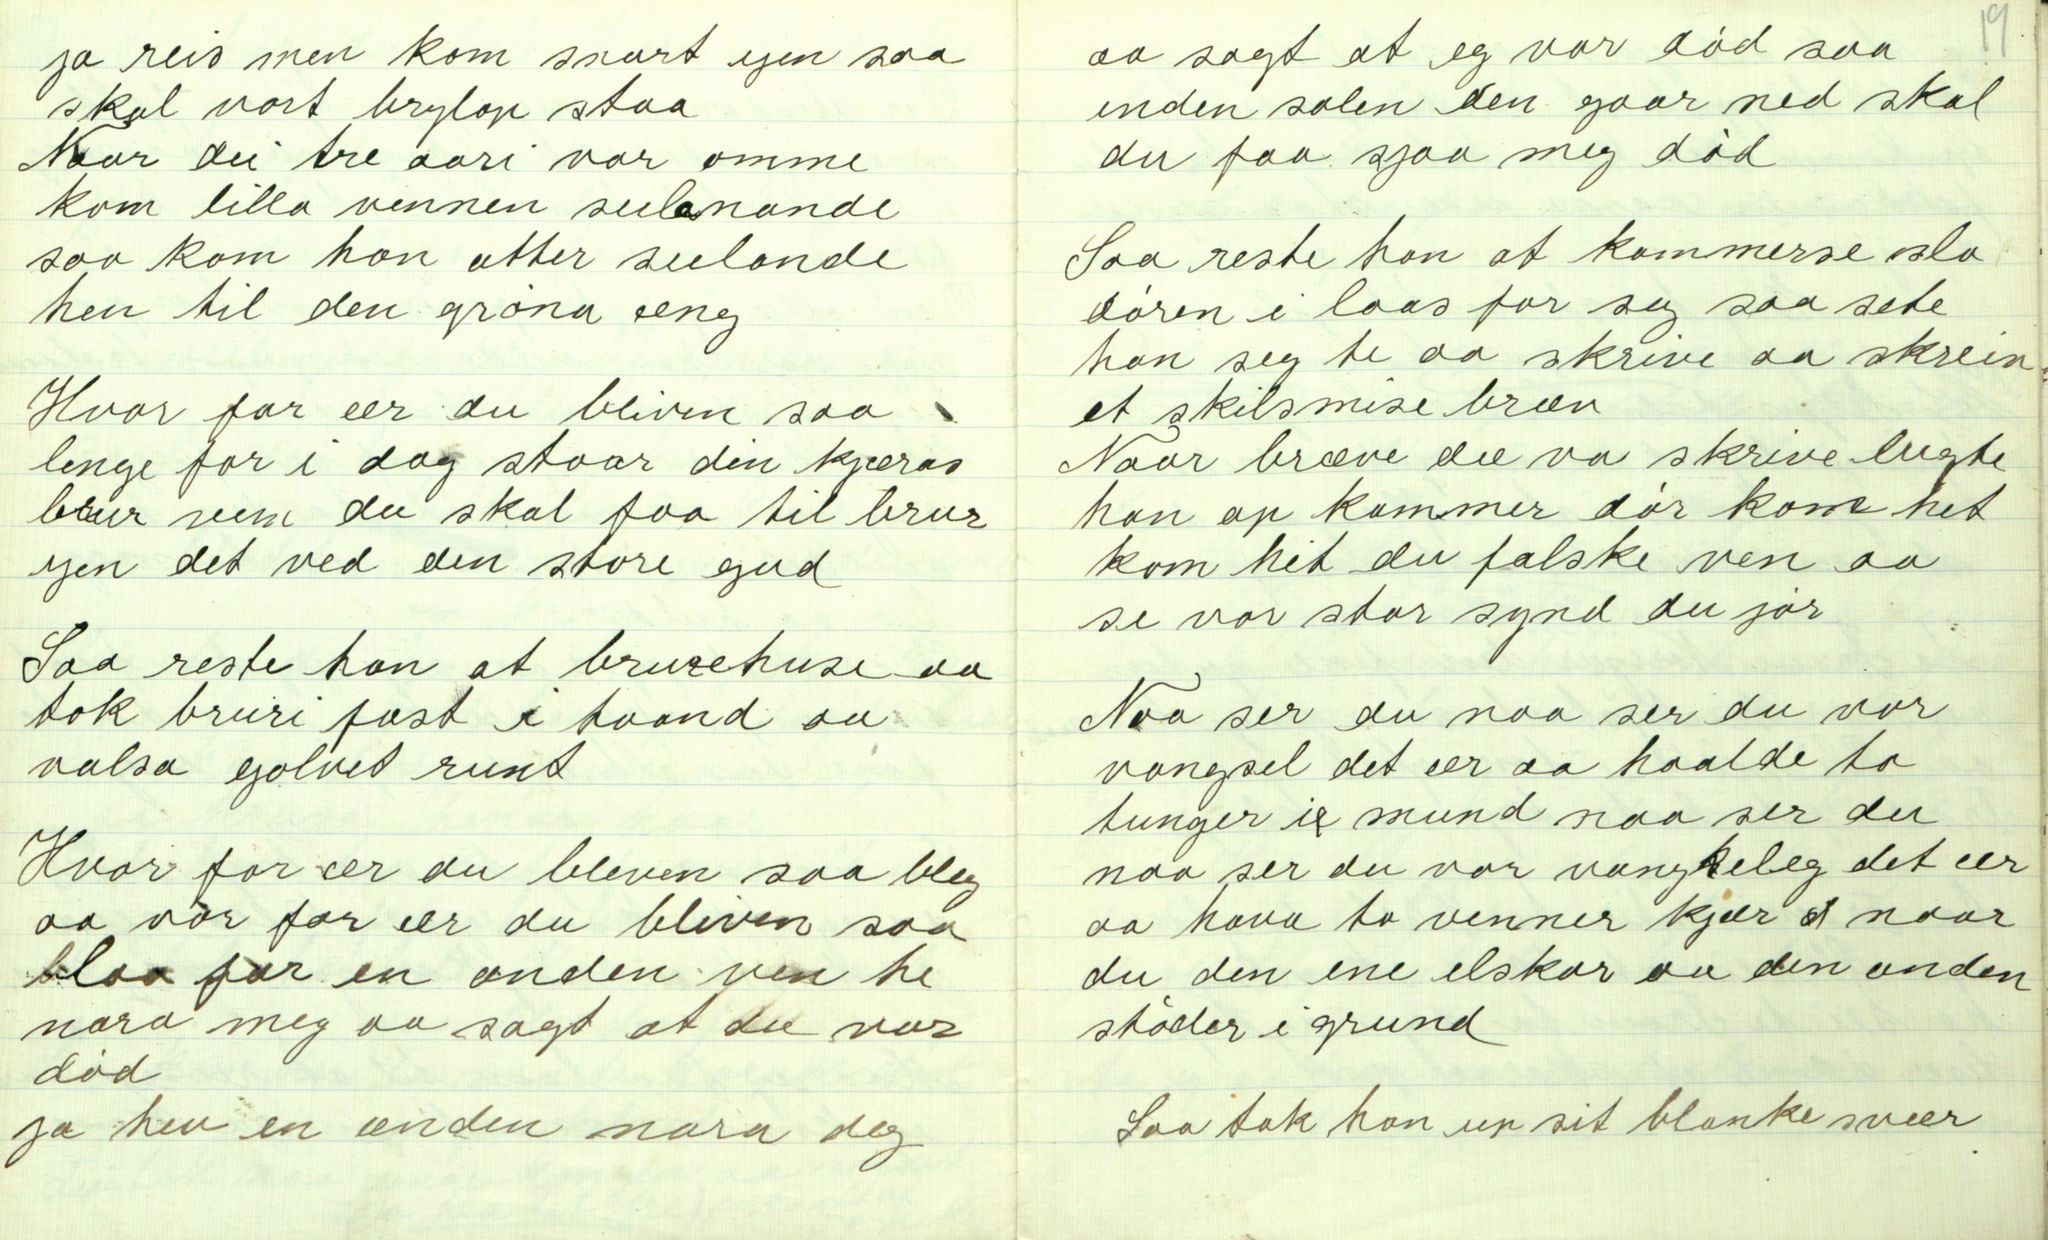 ja reis men kom snart igen saa
skal vort brylop staa
Naar dei tre aari var omme
kom lilla vennen seulanande
saa kom han atter seulande
hen til den gröna æng
Hvor for ær du bliven saa
lenge for i dag staar din kjæras
brur vem du skal faa til brur
igen det ved den store gud
Saa reste han at brurehuse aa
tok bruri fast i haand aa
valsa golvet runt
Hvor for ær du bleven saa bleg
aa vor for ær du bliven saa
blaa for en anden ven he
nara meg aa sagt at du var
död
ja hev en anden nara deg
19
aa sagt at eg var död saa
inden solen den gaar ned skal
du faa sjaa meg död
Saa reste han at kammerse sla
dören i laas for seg saa sete
han seg te aa skrive aa skrein
et skilsmise bræv
Naar bræve dæ va skrive lugte
han op kammer dör kom het
kom hit du falske ven aa
se vor stor synd du jör
Naa ser du naa ser du vor
vangsel det ær aa haalde to
tunger i mund naa ser du
naa ser du vor vangseleg det ær
aa hava to venner kjær naar
du den ene elskar aa den anden
stöder i grund
Saa tok han up sit blanke svær